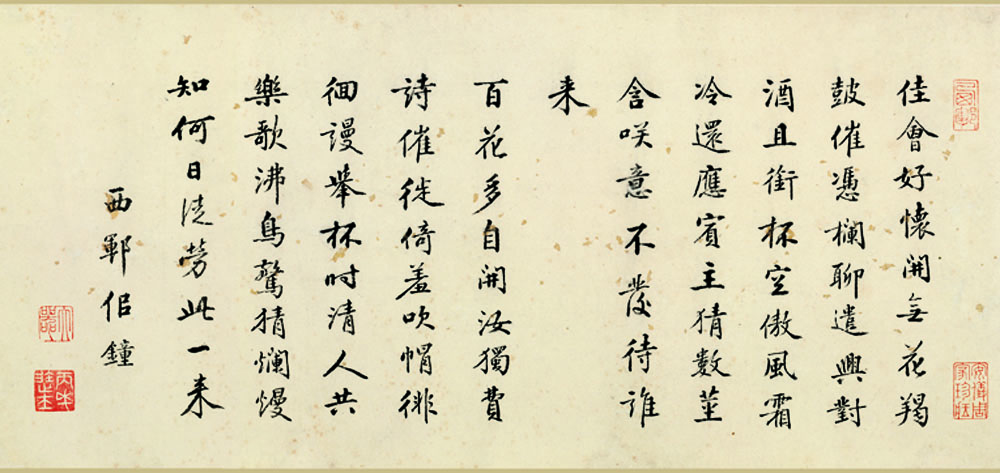 佳會好懷開無花羯
鼓催憑欄聊遣興對
酒且銜杯空傲風霜
冷還應賓主猜數莖
含咲意不發待誰
来
百花多自開汝獨費
詩催徙倚羞吹帽徘
徊謾舉杯時清人共
樂歌沸鳥驚猜爛熳
知何日徒勞此一来
西鄆侣鐘
安儀周
家珍藏